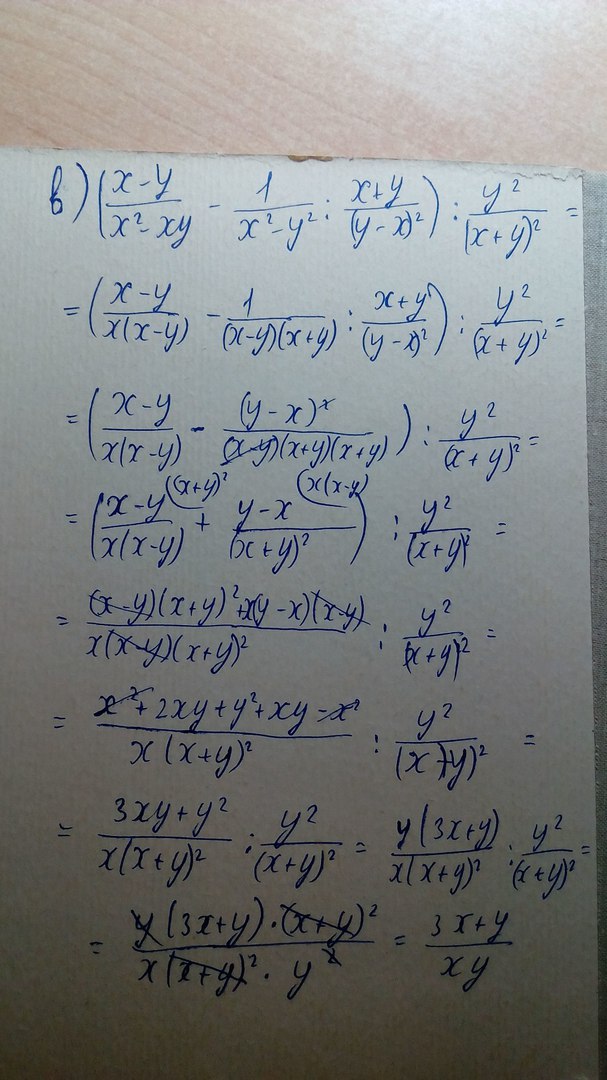 в) ((x-y)/(x²-xy) - 1/(x²-y²) : (x+y)/(y-x)²) : y²/(x+y)² =
= ((x-y)/(x(x-y)) - 1/((x-y)(x+y)) : (x+y)/(y-x)²) : y²/(x+y)² =
= ((x-y)/(x(x-y)) - (y-x)²/((x-y)(x+y)(x+y))) : y²/(x+y)² =
= ((x-y)^((x+y)²)/(x(x-y)) + (y-x)^(x(x-y))/(x+y)²) : y²/(x+y)² =
= ((x-y)(x+y)²+x(y-x)(x-y))/(x(x-y)(x+y)²) : y²/(x+y)² =
= (x²+2xy+y²+xy-x²)/(x(x+y)²) : y²/(x+y)² =
= (3xy+y²)/(x(x+y)²) : y²/(x+y)² = y(3x+y)/(x(x+y)²) : y²/(x+y)² =
= (y(3x+y)·(x+y)²)/(x(x+y)²·y²) = (3x+y)/(xy)